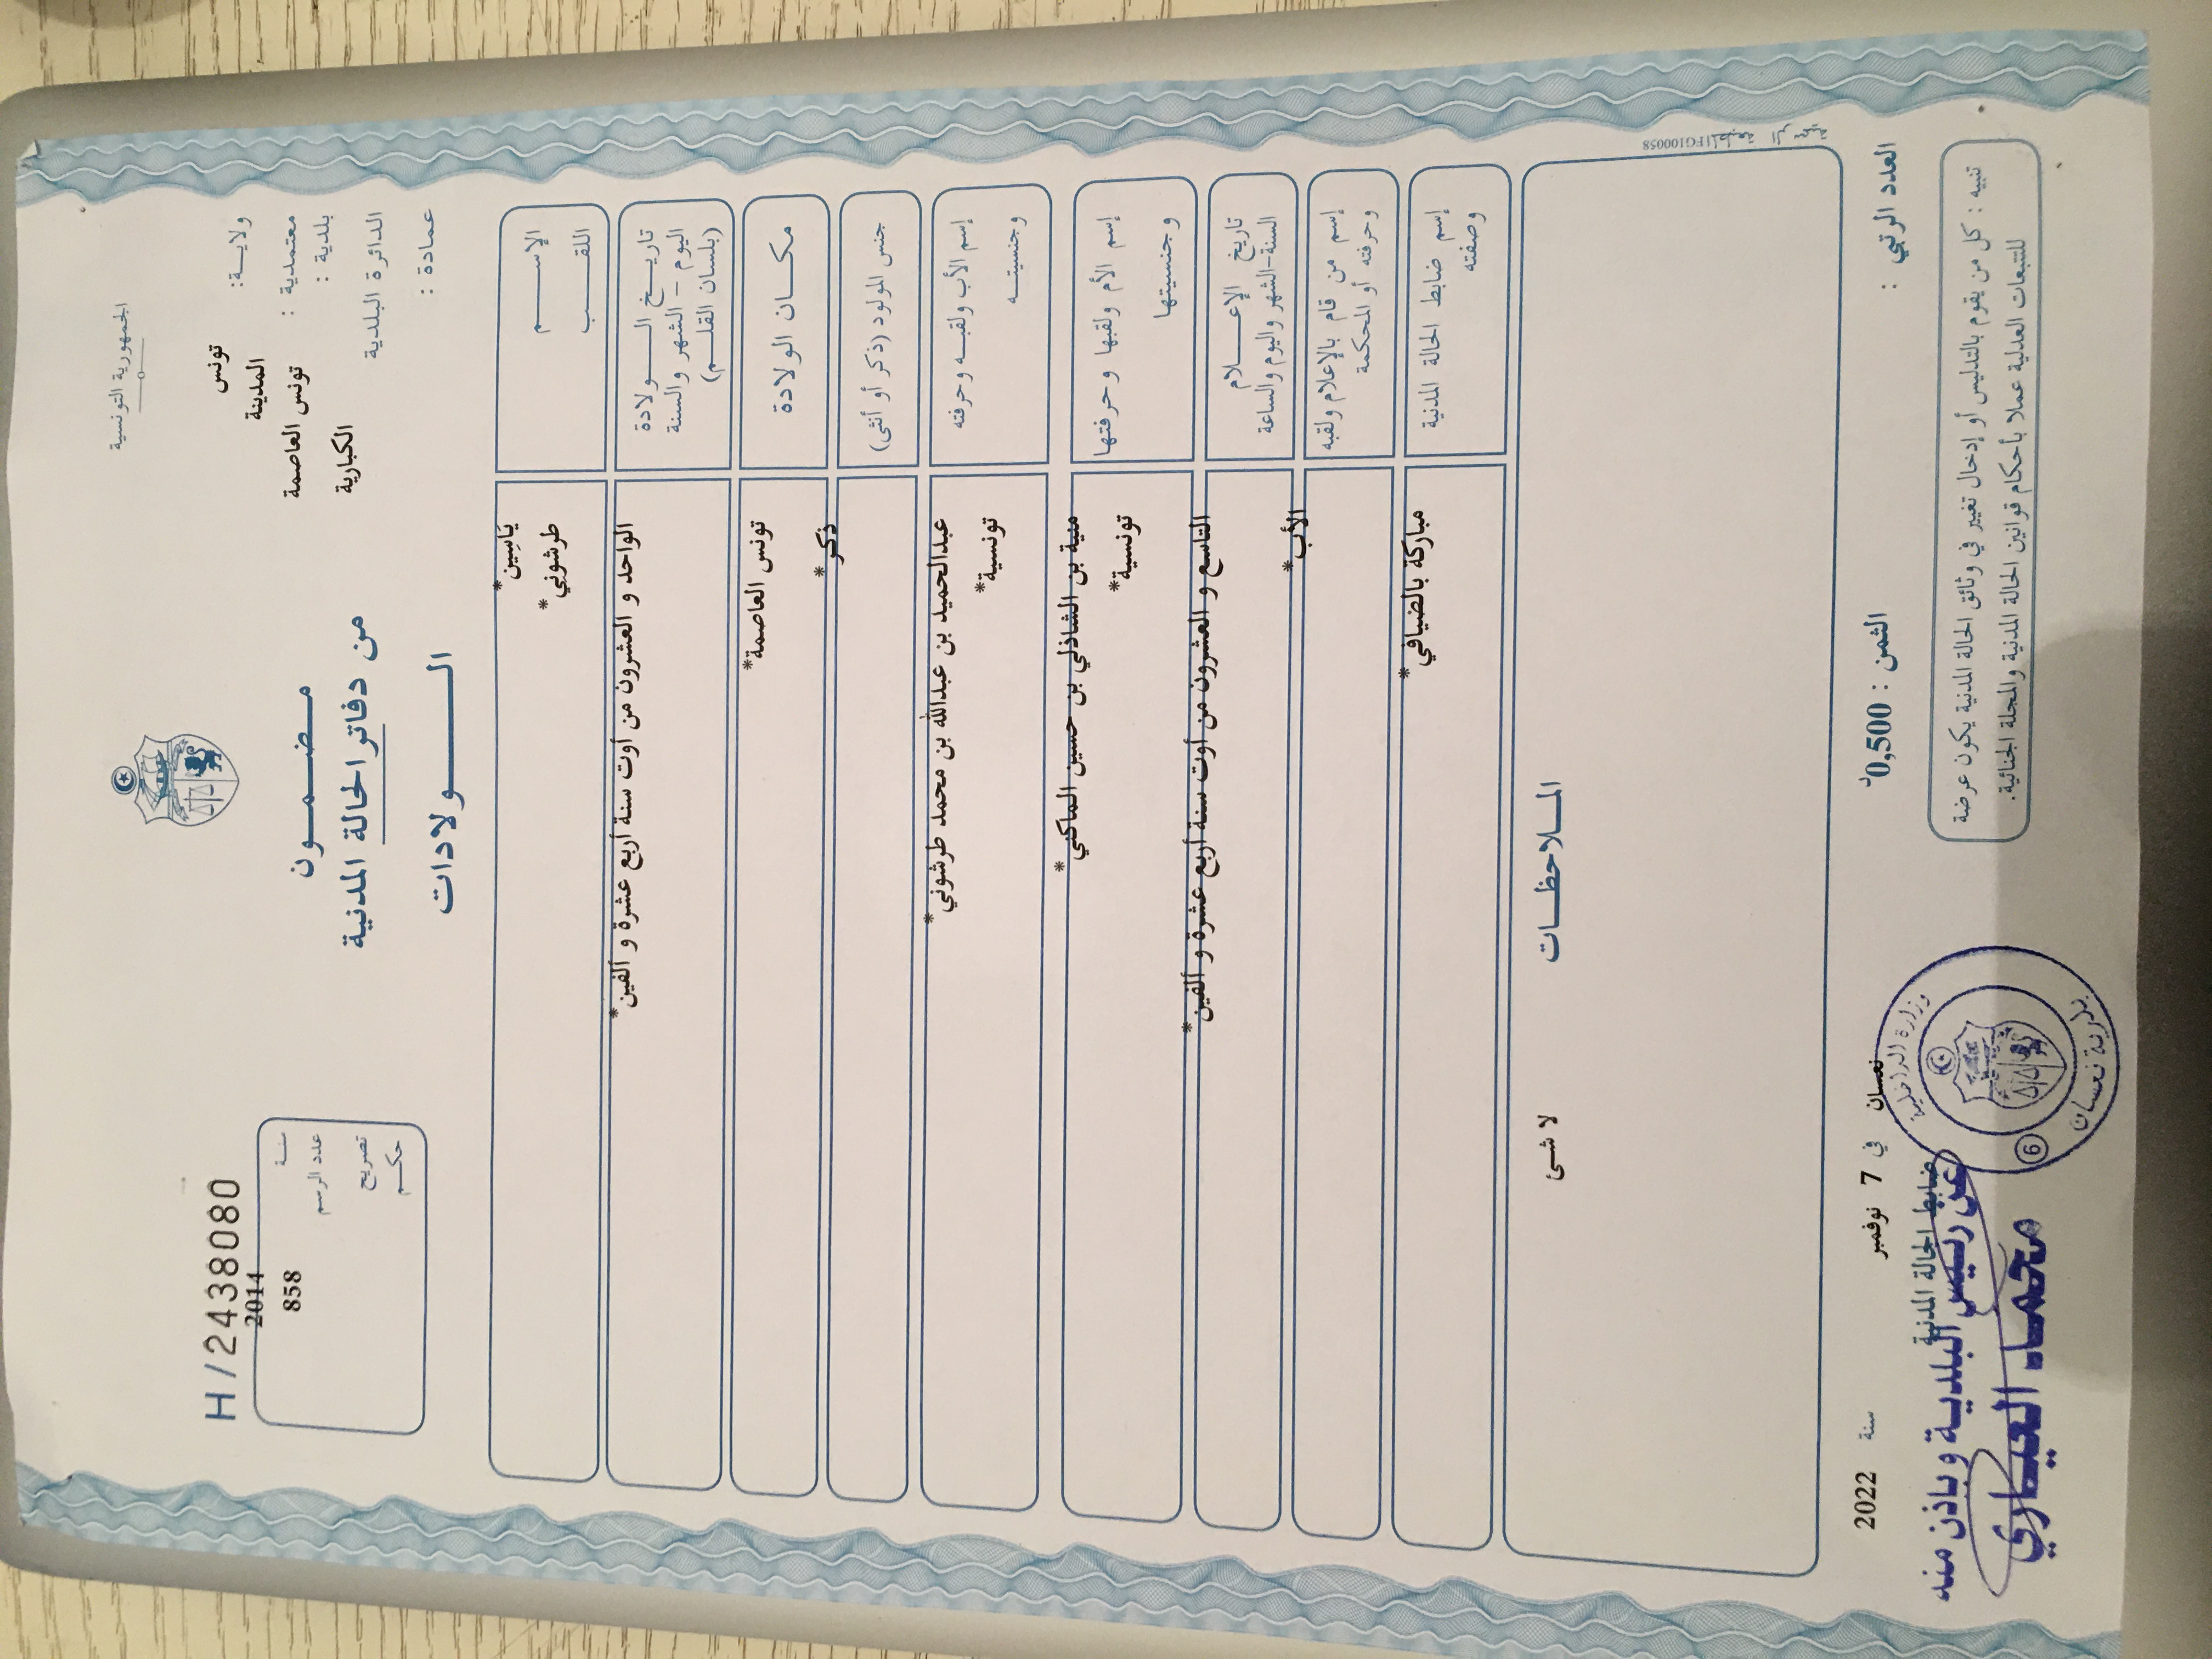 الجمهورية التونسية
H/2438080
ولايـة: تونس
معتمدية : المدينة
بلدية : تونس العاصمة
الدائرة البلدية الكبارية
عمادة :
سنـة 2014
عدد الرسم 858
تصريح
حكـم
مضـمـون
من دفاتر الحالة المدنية
الـولادات
الإسـم ياسين*
اللقـب طرشوني*
تاريـخ الـولادة الواحد و العشرون من أوت سنة أربع عشرة و ألفين*
(اليوم - الشهر والسنة
بلسان القلـم)
مكـان الولادة تونس العاصمة*
جنس المولود (ذكر أو أنثى) ذكر*
إسم الأب ولقبـه وحرفته عبدالحميد بن عبدالله بن محمد طرشوني*
وجنسيتـه تونسية*
إسم الأم ولقبها وحرفتها منية بن الشاذلي بن حسين الماكني*
وجنسيتها تونسية*
تاريخ الإعـلام التاسع و العشرون من أوت سنة أربع عشرة و ألفين*
السنة-الشهر واليوم والساعة
إسم من قام بالإعلام ولقبه الأب*
وحرفته أو المحكمة
إسم ضابط الحالة المدنية مباركة بالضيافي*
وصفته
المـلاحظـات
لا شئ
العدد الرتبي :
الثمن : 0,500د
نعسان في 7 نوفمبر سنة 2022
ضابط الحالة المدنية
عن رئيس البلدية وبإذن منه
محمد العياري
وزارة الداخلية
بلدية نعسان
6
تنبيه : كل من يقوم بالتدليس أو إدخال تغيير في وثائق الحالة المدنية يكون عرضة
للتتبعات العدلية عملا بأحكام قوانين الحالة المدنية والمجلة الجنائية.